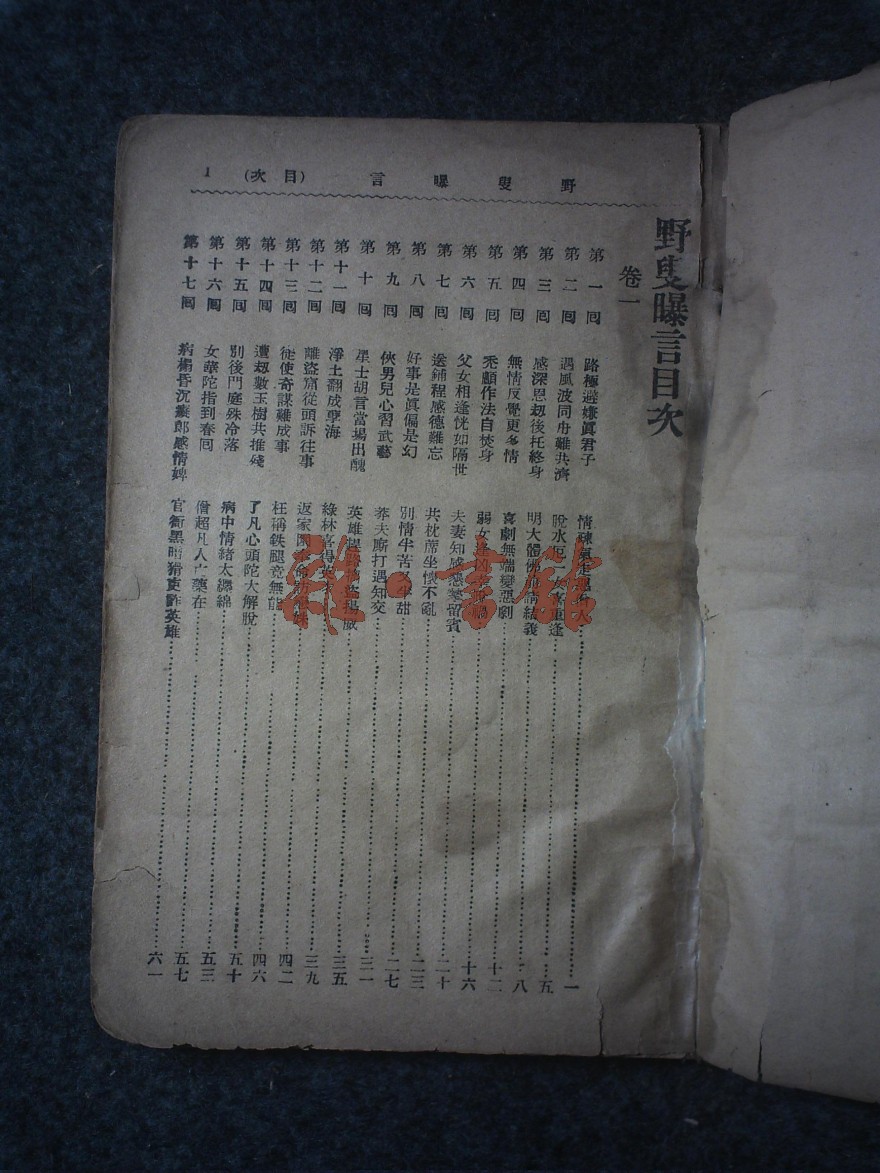 野叟曝言 (目次) 1
野叟曝言目次
卷一
第一回 路極避嫌眞君子 情 人 一
第二回 遇風波同舟難共濟 脫水 重逢 五
第三回 感深恩刼後托終身 明大體 情結義 八
第四回 無情反覺更多情 喜劇無端變惡劇 十二
第五回 禿顱作法自焚身 弱女逢凶 十六
第六回 父女相逢恍如隔世 夫妻知感懇摯留賓 二十
第七回 送鋪程感德難忘 共枕蓆坐懷不亂 二三
第八回 好事是眞偏是幻 別情半苦 甜 二七
第九回 俠男兒心習武藝 莽夫廝打遇知交 三一
第十回 星士胡言當場出醜 英雄 揚威 三五
第十一回 淨土翻成孽海 綠林喜得英 三九
第十二回 離盜窟從頭訴往事 返家園 妹 四二
第十三回 徒使奇謀難成事 枉稱鉄腿竟無能 四六
第十四回 遭刼數玉樹共推殘 了凡心頭陀大解脫 五十
第十五回 別後門庭殊冷落 病中情緒太纒綿 五三
第十六回 女華陀指到春回 僧超凡人亡藥在 五七
第十七回 病榻昏沉癡郎感情婢 官衙黑暗猾吏詐英雄 六一
雜·書館